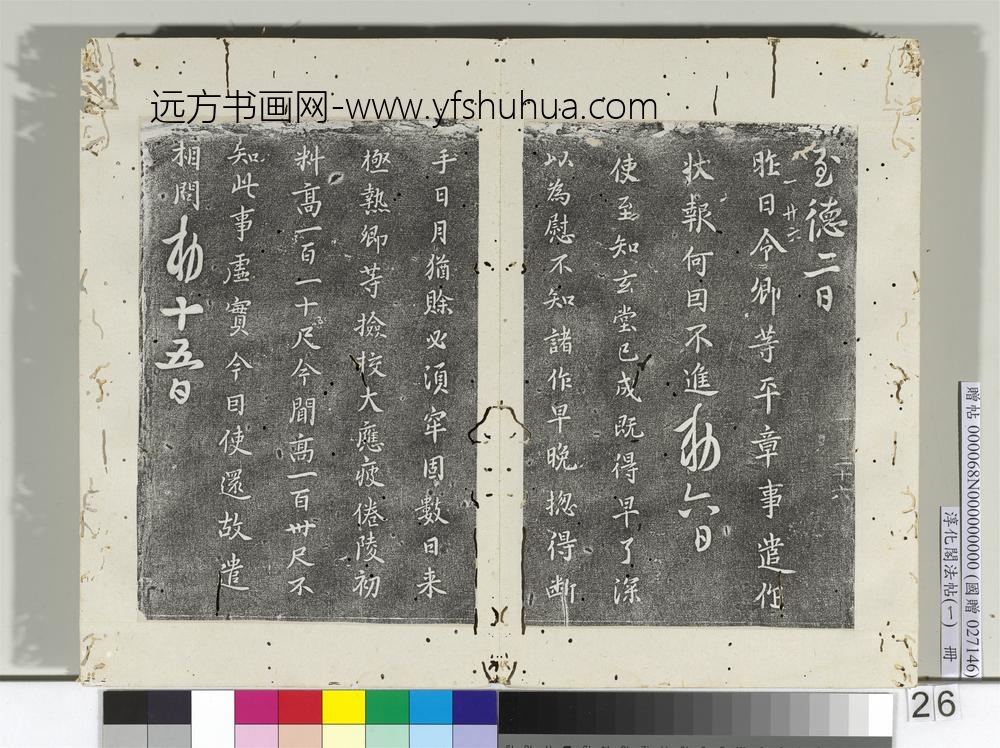 远方书画网-www.yfshuhua.com
至德二日
一卅六
昨日令卿等平章事遣作
狀報何因不進勅六日
使至知玄堂已成既得早了深
以為慰不知諸作早晚惣得斷
手日月猶賒必須牢固數日来
極熱卿等撿挍大應疲倦陵初
料高一百一十尺今聞高一百卅尺不
知此事虛實今因使還故遣
相問勅十五日
二十六
贈帖 000068N000000000 (國贈 027146)
淳化閣法帖(一) 冊
26